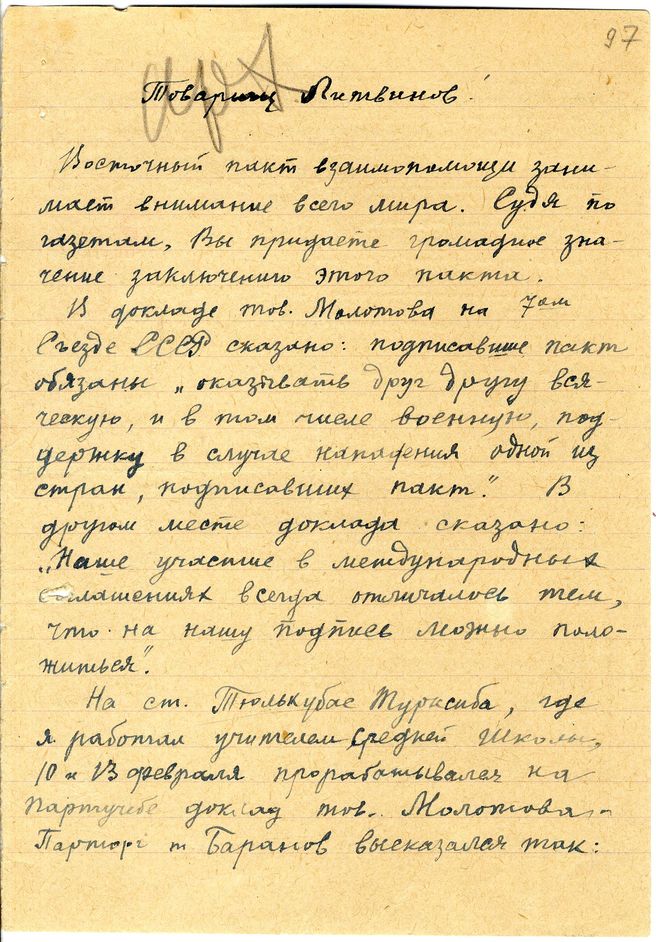 97
арх
Товарищ Литвинов!
Восточный пакт взаимопомощи зани-
мает внимание всего мира. Судя по
газетам, Вы придаете громадное зна-
чение заключению этого пакта.
В докладе тов. Молотова на 7ом
Съезде СССР сказано: подписавшие пакт
обязаны „оказывать друг другу вся-
ческую, и в том числе военную, под-
держку в случае нападения одной из
стран, подписавших пакт". В
другом месте доклада сказано:
„Наше участие в международных
соглашениях всегда отличалось тем,
что на нашу подпись можно поло-
житься".
На ст. Тюлькубас Турксиба, где
я работал учителем средней школы,
10 и 13 февраля прорабатывался на
Партучебе доклад тов. Молотова.
Парторг т Баранов высказался так: